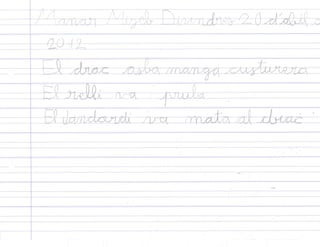 Manar Mzeb Divendres 20 d'abril
2012
El drac asba manga custurera
El relli va prula
El Jandardi va mata al drac